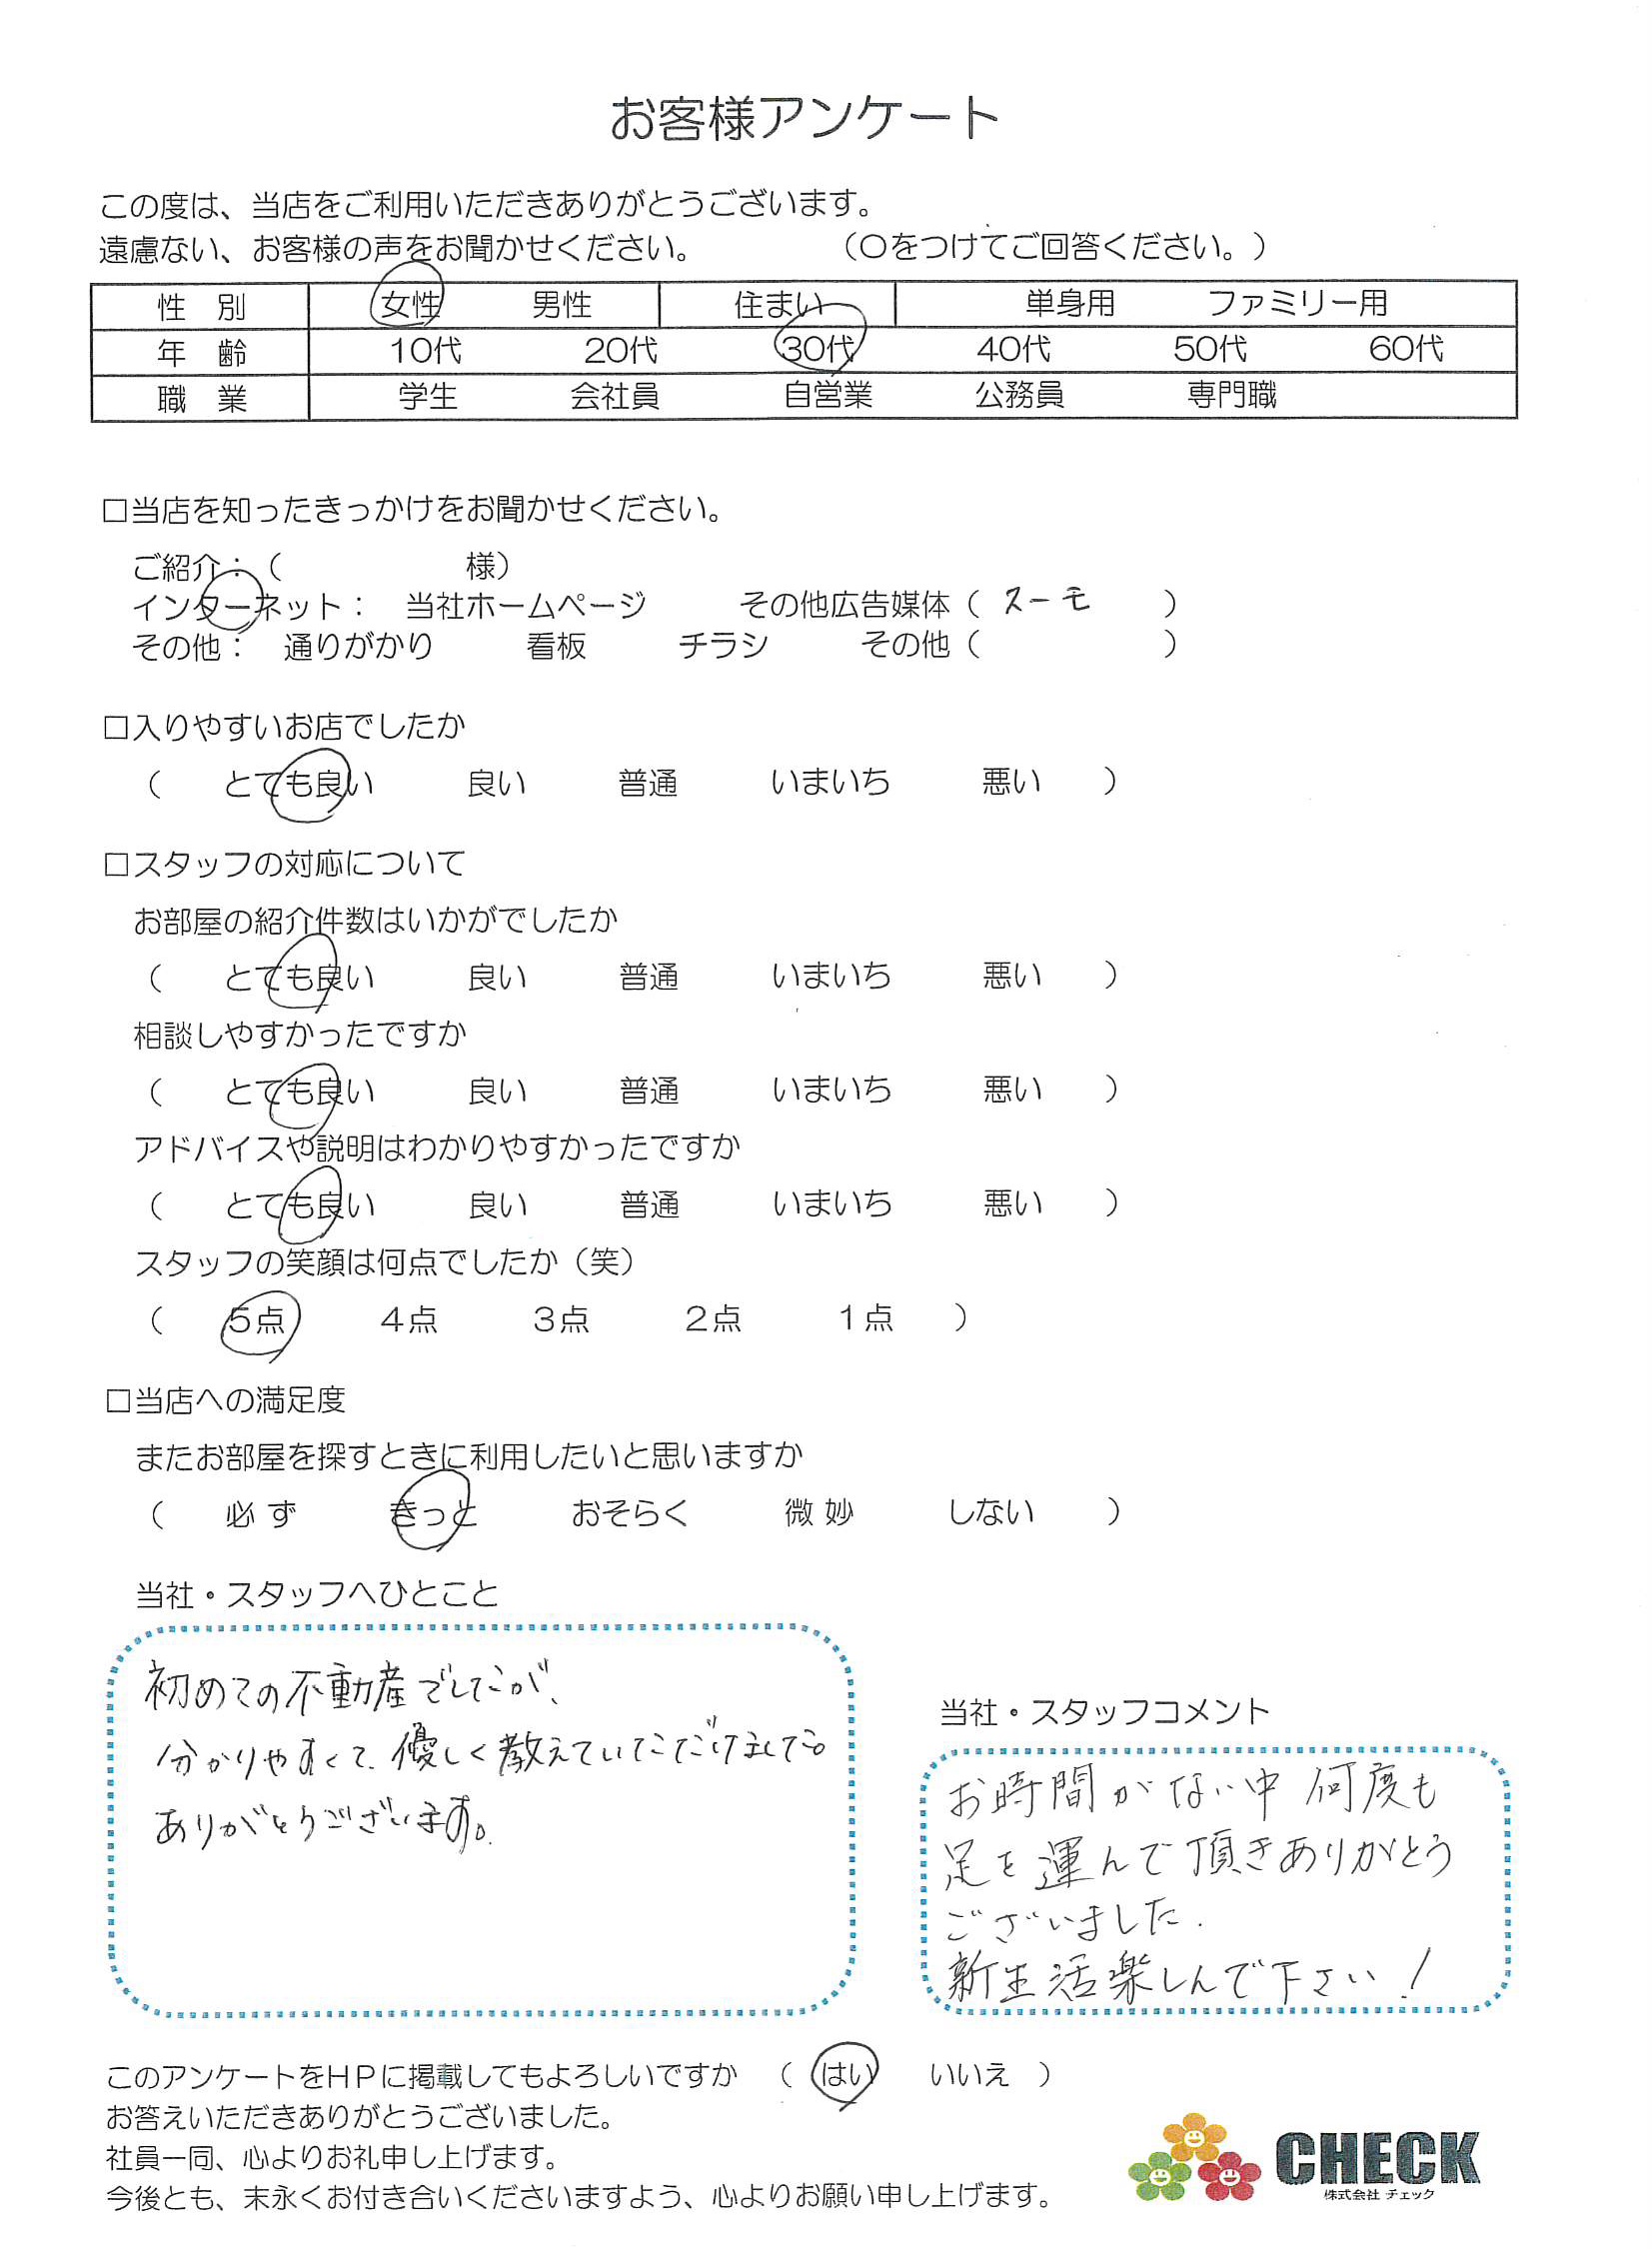 お客様アンケート
この度は、当店をご利用いただきありがとうございます。
遠慮ない、お客様の声をお聞かせください。 （〇をつけてご回答ください。）
性 別 女性 男性 住まい 単身用 ファミリー用
年 齢 10代 20代 30代 40代 50代 60代
職 業 学生 会社員 自営業 公務員 専門職
□当店を知ったきっかけをお聞かせください。
ご紹介：（ 様）
インターネット： 当社ホームページ その他広告媒体（ スーモ ）
その他： 通りがかり 看板 チラシ その他（ ）
□入りやすいお店でしたか
（ とても良い 良い 普通 いまいち 悪い ）
□スタッフの対応について
お部屋の紹介件数はいかがでしたか
（ とても良い 良い 普通 いまいち 悪い ）
相談しやすかったですか
（ とても良い 良い 普通 いまいち 悪い ）
アドバイスや説明はわかりやすかったですか
（ とても良い 良い 普通 いまいち 悪い ）
スタッフの笑顔は何点でしたか（笑）
（ 5点 4点 3点 2点 1点 ）
□当店への満足度
またお部屋を探すときに利用したいと思いますか
（ 必ず きっと おそらく 微妙 しない ）
当社・スタッフへひとこと
初めての不動産でしたが、
分かりやすくて、優しく教えていただけました。
ありがとうございます。
当社・スタッフコメント
お時間がない中 何度も
足を運んで頂きありがとう
ございました.
新生活楽しんで下さい！
このアンケートをHPに掲載してもよろしいですか （ はい いいえ ）
お答えいただきありがとうございました。
社員一同、心よりお礼申し上げます。
今後とも、末永くお付き合いくださいますよう、心よりお願い申し上げます。
CHECK
株式会社 チェック